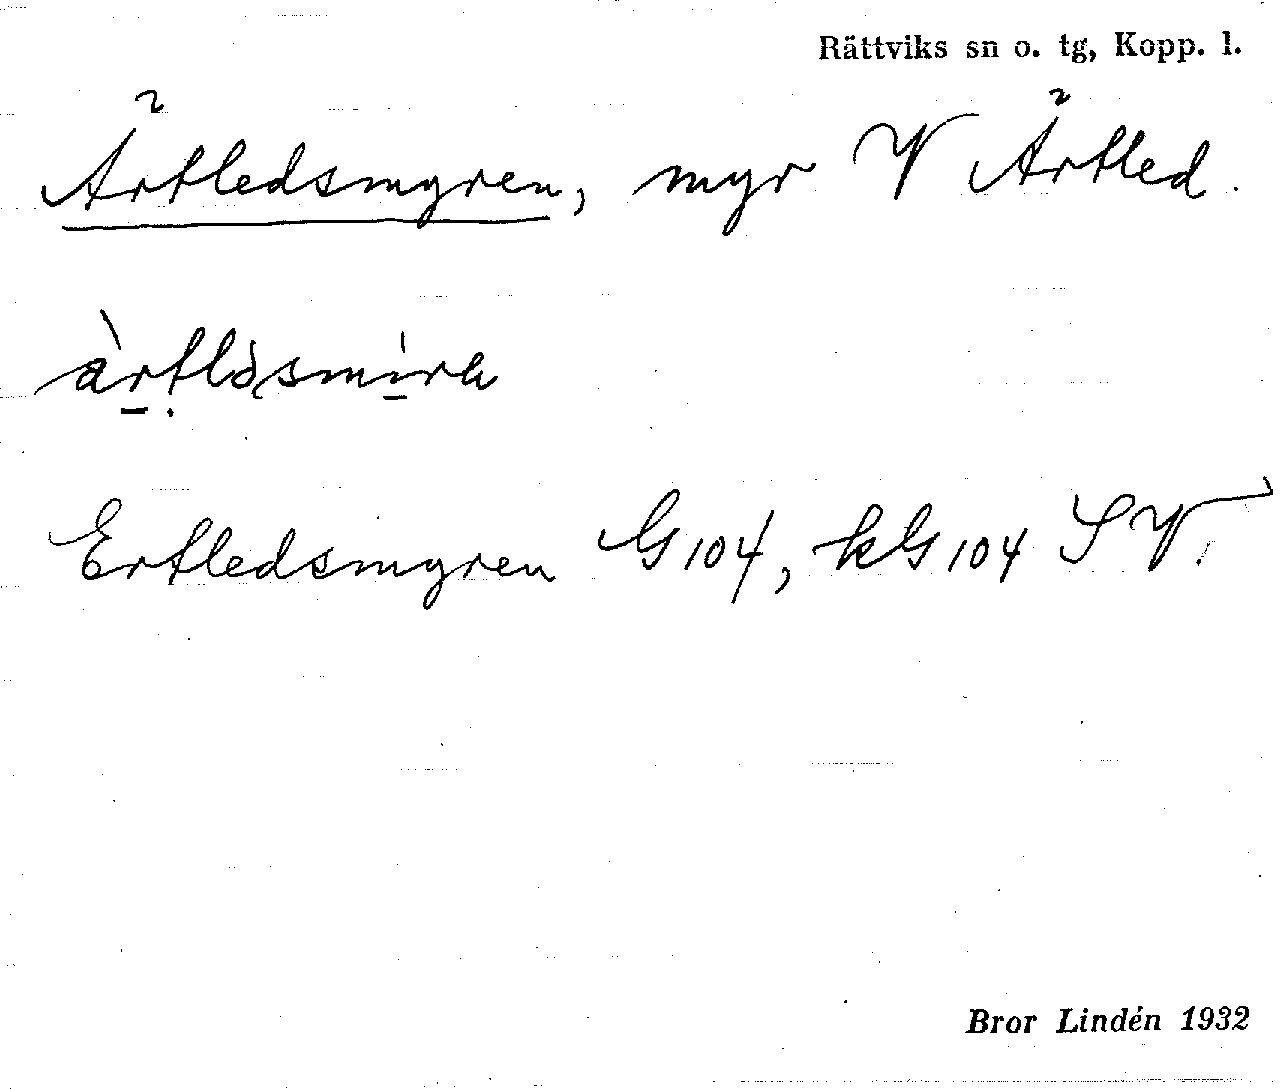 Rättviks sn o. tg, Kopp. l.
Ärtledsmyren, myr V Ärtled.
Ertledsmyren G 104, kG 104 SV.
Bror Lindén 1932